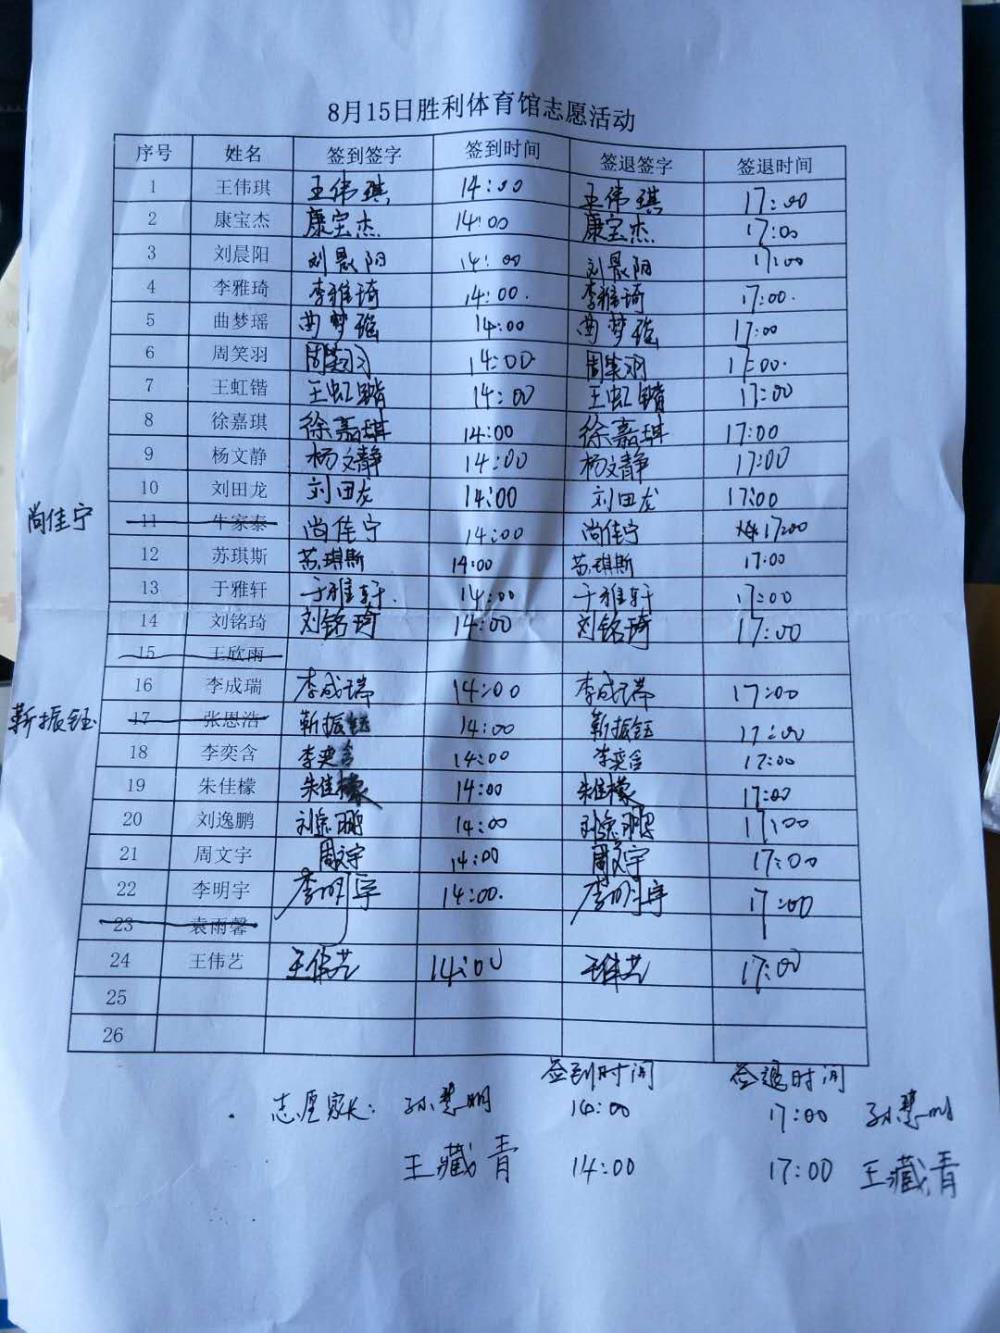 8月15日胜利体育馆志愿活动
序号 姓名 签到签字 签到时间 签退签字 签退时间
1 王伟琪 王伟琪 14:00 王伟琪 17:00
2 康宝杰 康宝杰 14:00 康宝杰 17:00
3 刘晨阳 刘晨阳 14:00 刘晨阳 17:00
4 李雅琦 李雅琦 14:00. 李雅琦 17:00.
5 曲梦瑶 曲梦瑶 14:00 曲梦瑶 17:00
6 周笑羽 周笑羽 14:00. 周笑羽 17:00.
7 王虹锴 王虹锴 14:00 王虹锴 17:00
8 徐嘉琪 徐嘉琪 14:00 徐嘉琪 17:00
9 杨文静 杨文静 14:00 杨文静 17:00
10 刘田龙 刘田龙 14:00 刘田龙 17:00
尚佳宁 11 牛家泰 尚佳宁 14:00 尚佳宁 17:00
12 苏琪斯 苏琪斯 14:00 苏琪斯 17:00
13 于雅轩 于雅轩. 14:00 于雅轩 17:00
14 刘铭琦 刘铭琦 14:00 刘铭琦 17:00
15 王欣雨
16 李成瑞 李成瑞 14:00 李成瑞 17:00
靳振钰 17 张恩浩 靳振钰 14:00 靳振钰 17:00
18 李奕含 李奕含 14:00 李奕含 17:00
19 朱佳檬 朱佳檬 14:00 朱佳檬 17:00
20 刘逸鹏 刘逸鹏 14:00 刘逸鹏 17:00
21 周文宇 周文宇 14:00 周文宇 17:00
22 李明宇 李明宇 14:00. 李明宇 17:00
23 袁雨馨
24 王伟艺 王伟艺 14:00 王伟艺 17:00
25
26
签到时间 签退时间
志愿家长: 孙慧明 14:00 17:00 孙慧明
王藏青 14:00 17:00 王藏青